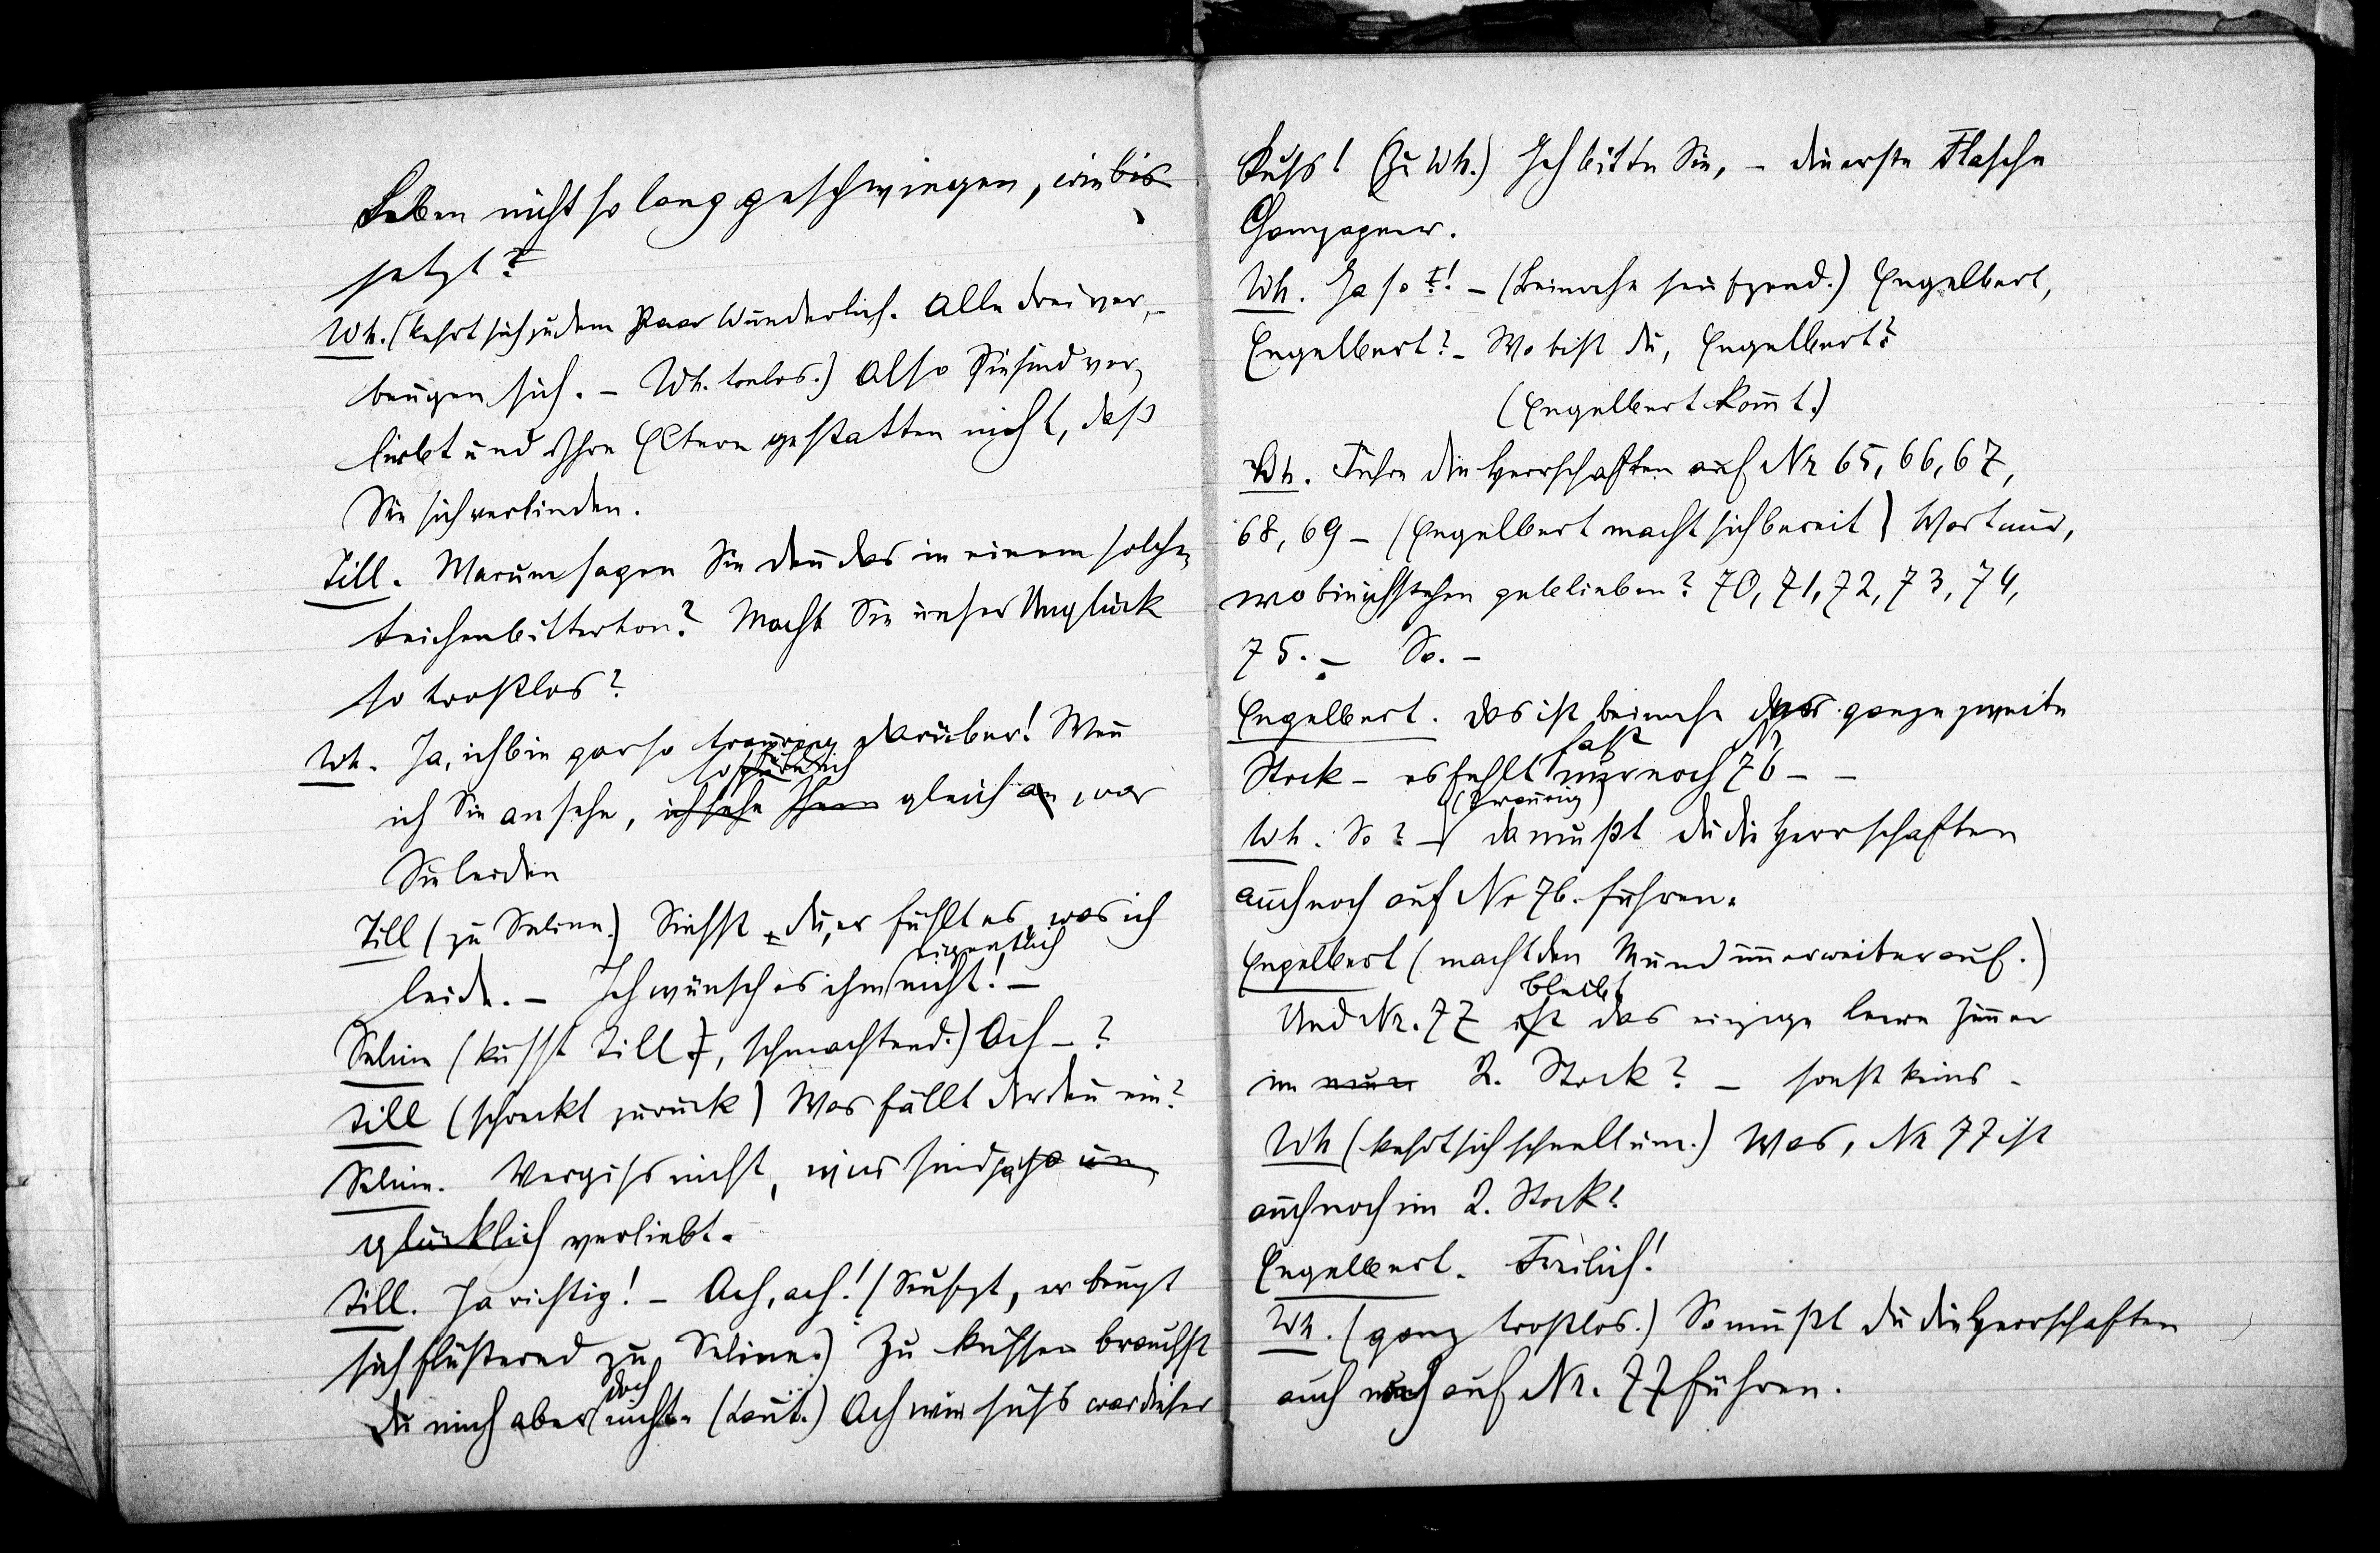 Leben nicht so lang geschwiegen, wie bis
jetzt?
Wh. (kehrt sich zu dem Paar Wunderlich. Alle drei ver-
beugen sich. – Wh. tonlos.) Also Sie sind ver-
liebt und Ihre Eltern gestatten nicht, daß
Sie sich verbinden.
Till. Warum sagen Sie den̄ das in einem solchen
Leichenbitterton? Macht Sie unser Unglück
so trostlos?
Wh. Ja, ich bin gar so traurig darüber! Wen̄
so spüre ich
ich Sie ansehe, ich sehe Ihnen gleich an, was
Sie leiden
Till (zu Seline.) Siehst du, er fühlt es, was ich
eigentlich
leide. – Ich wünsch es ihm nicht! –
Seline (küsst Till, schmachtend.) Ach – ?
Till (schreckt zurück) Was fällt dir den̄ ein?
Seline. Vergiss nicht, wir sind ja so un-
glücklich verliebt.
Till. Ja richtig! – Ach, ach! (Seufzt, er beugt
sich flüsternd zu Seline.) Zu küssen brauchst
doch
du mich aber nicht. (Laut.) Ach wie süss war dieser
Kuss! (Zu Wh.) Ich bitte Sie, – die erste Flasche
Champagner.
Wh. Ja so! – (Beinahe seufzend.) Engelbert,
Engelbert? – Wo bist du, Engelbert?
(Engelbert kom̄t.)
Wh. Führe die Herrschaften auf Nr 65, 66, 67,
68, 69 – (Engelbert macht sich bereit) Wart nur,
wo bin ich stehen geblieben? 70, 71, 72, 73, 74,
75. – So. –
Engelbert. Das ist beinahe der ganze zweite
fast
Stock – es fehlt nur noch 76 – –
(Traurig)
Wh. So? – da mußt du die Herrschaften
auch noch auf No 76. führen.
Engelbert (macht den Mund im̄er weiter auf.)
bleibt
Und Nr. 77 ist das einzige leere Zim̄er
im 2. Stock? – sonst keins –
Wh (kehrt sich schnell um.) Was, Nr 77 ist
auch noch im 2. Stock?
Engelbert. Freilich!
Wh. (ganz trostlos.) So mußt du die Herrschaften
auch noch auf Nr. 77 führen.